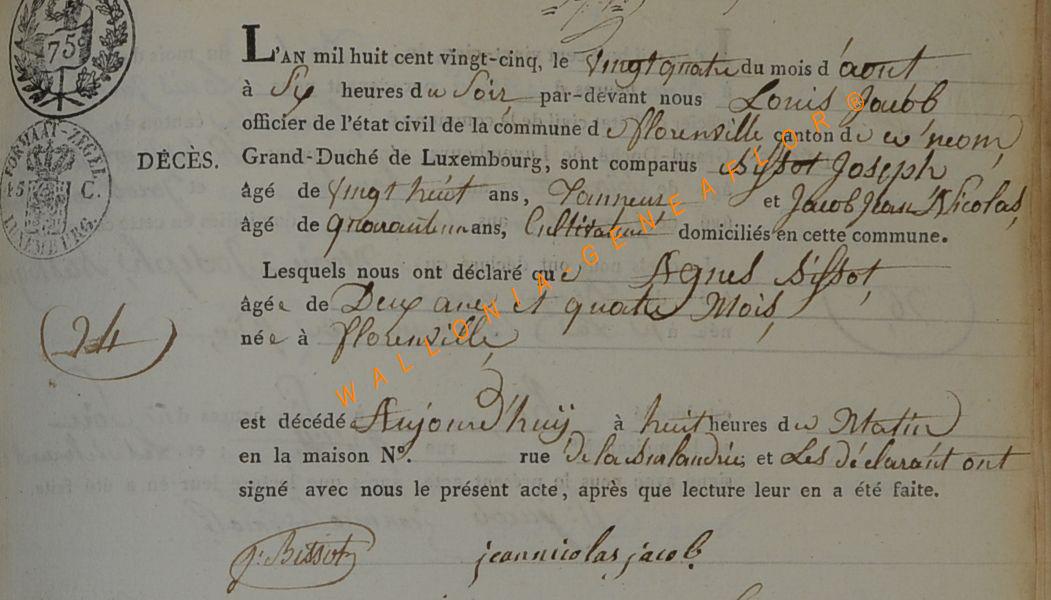 75
FORMAAT-ZEGEL
45 C.
LUXEMBURG.
L'AN mil huit cent vingt-cinq, le vingt quatre du mois d'août
à Six heures du Soir par-devant nous Louis Jacob
officier de l'état civil de la commune de florenville canton de ce nom
DÉCÈS. Grand-Duché de Luxembourg, sont comparus Bissot Joseph
âgé de vingt huit ans, Tanneur et Jacob Jean Nicolas
âgé de quarante un ans, Cultivateur domiciliés en cette commune.
Lesquels nous ont déclaré que Agnes Bissot
âgée de Deux ans et quatre Mois
(24) née à florenville
est décédé Aujourd'huÿ à huit heures du Matin
en la maison Nº. rue de la et Les déclarant ont
signé avec nous le présent acte, après que lecture leur en a été faite.
j. Bissot jean nicolas jacob
WALLONIA-GENEAFLOR®